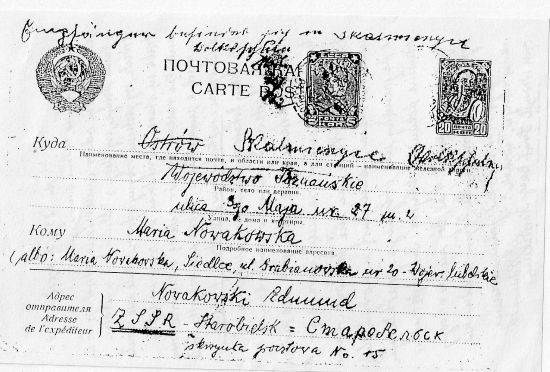 Empfänger befindet sich in Skalmierzyce
ПОЧТОВАЯ КАР
CARTE POS
5 5
20 20
Куда Ostrów Skalmierzyce
Наименование места, где находится почта, и области или края, а для станций — наименование железной дороги
Województwo Poznańskie
Район, село или деревня.
ulica 3go Maja nr. 27 m. 2
Улица, № дома и квартиры.
Кому Maria Nowakowska
Подробное наименование адресата
(albo: Maria Nowakowska, Siedlce, ul. Grabianowska nr 20 - Wojew. Lubelskie
Адрес отправителя Nowakowski Edmund
Adresse de l'expéditeur ZSSR - Starobielsk = Старобельск
skrzynka pocztowa No. 15